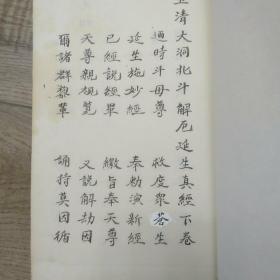 上清大洞北斗解厄延生真經下卷
適時斗母尊 救度眾蒼生
延生施妙經 奉勅演新經
已經說經畢 繳旨奉天尊
天尊親視覽 又說解劫因
爾諸群黎輩 誦持莫因循